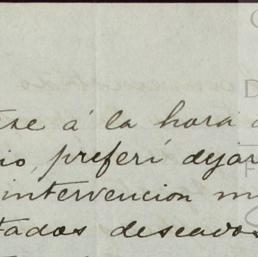 ese á la hora
io, preferí dejar
intervencion m
tados deseados